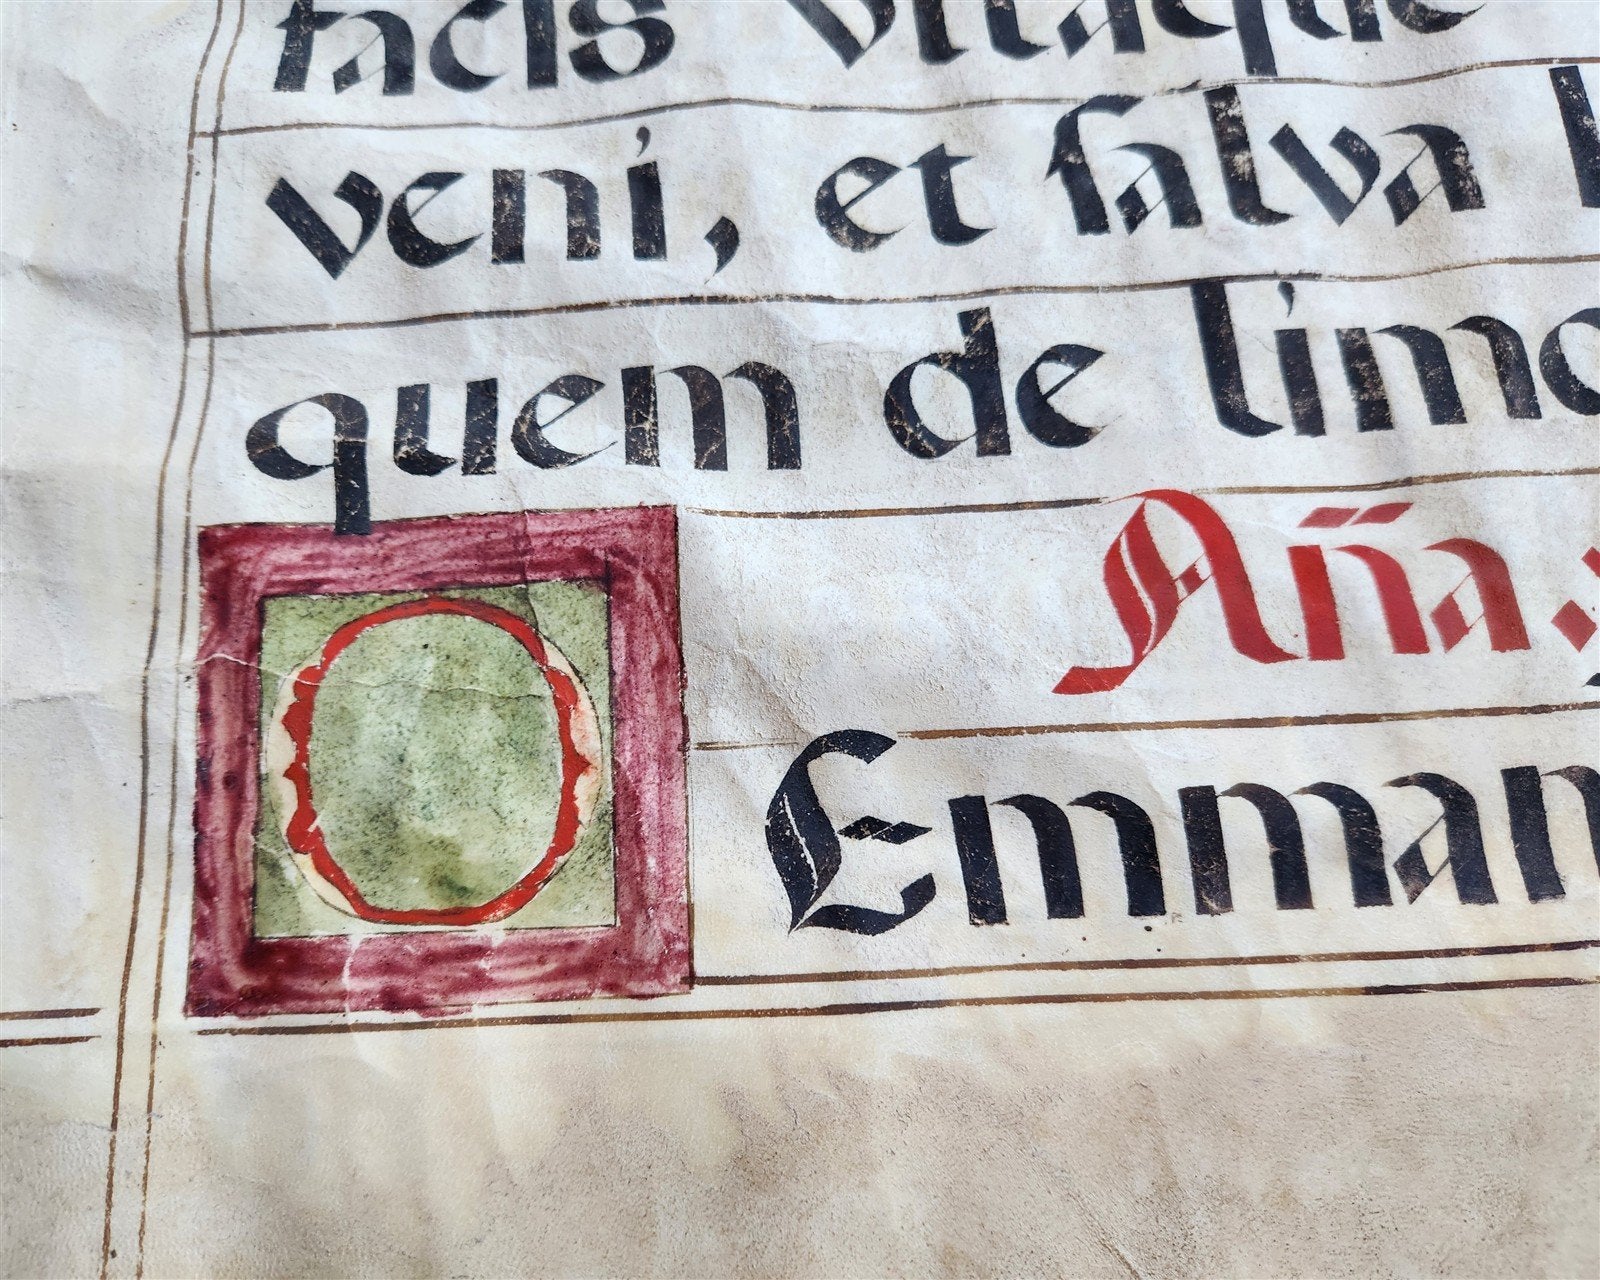 facis vitaque
veni, et salva
quem de limo
Añã.
O Emman